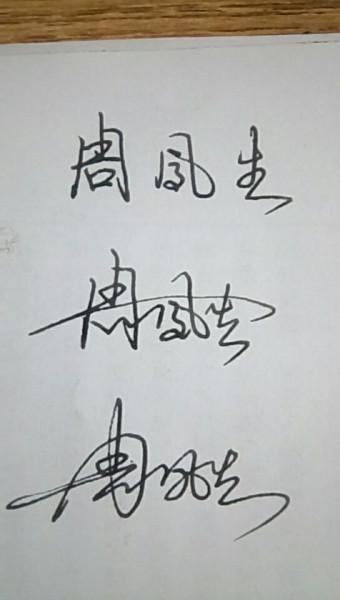 周凤生
周凤生
周凤生